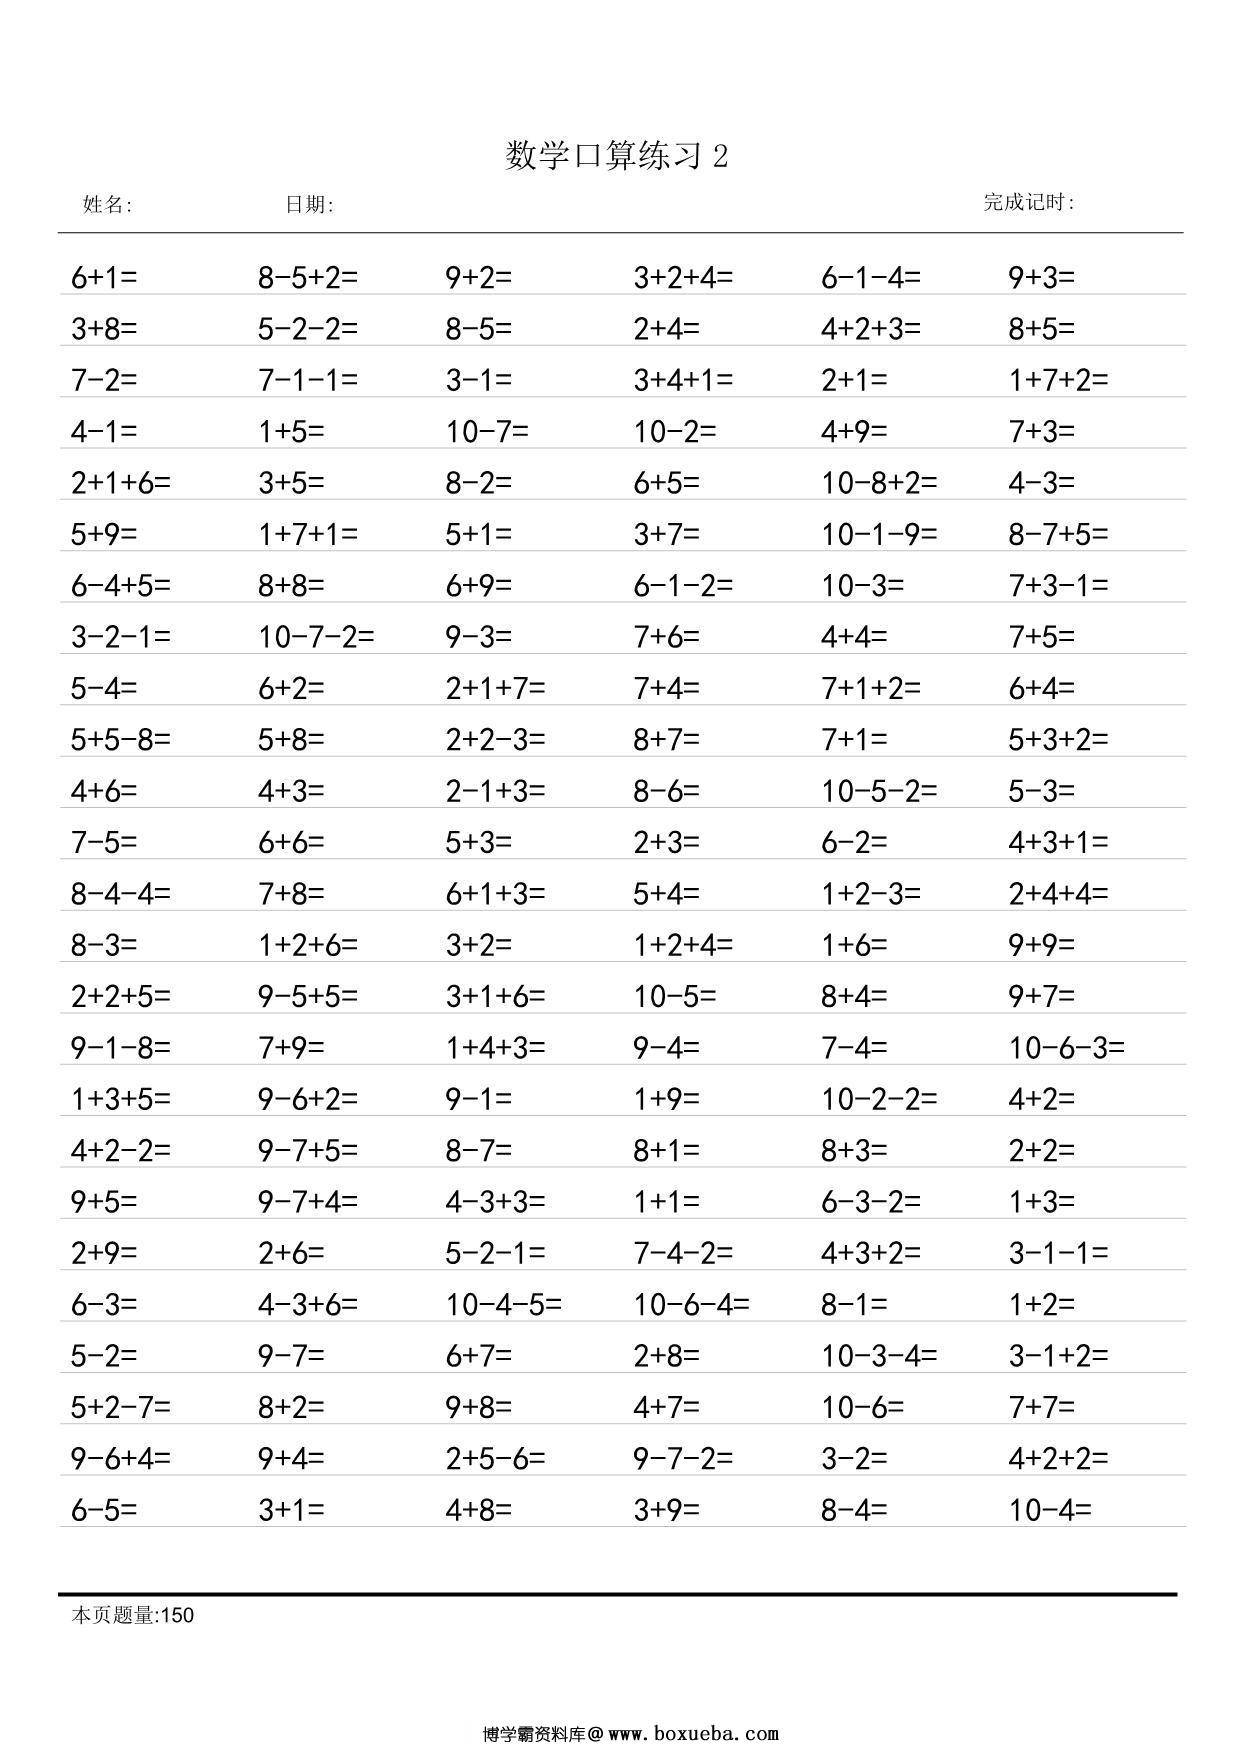 数学口算练习 2
姓名: 日期: 完成记时:
6+1= 8-5+2= 9+2= 3+2+4= 6-1-4= 9+3=
3+8= 5-2-2= 8-5= 2+4= 4+2+3= 8+5=
7-2= 7-1-1= 3-1= 3+4+1= 2+1= 1+7+2=
4-1= 1+5= 10-7= 10-2= 4+9= 7+3=
2+1+6= 3+5= 8-2= 6+5= 10-8+2= 4-3=
5+9= 1+7+1= 5+1= 3+7= 10-1-9= 8-7+5=
6-4+5= 8+8= 6+9= 6-1-2= 10-3= 7+3-1=
3-2-1= 10-7-2= 9-3= 7+6= 4+4= 7+5=
5-4= 6+2= 2+1+7= 7+4= 7+1+2= 6+4=
5+5-8= 5+8= 2+2-3= 8+7= 7+1= 5+3+2=
4+6= 4+3= 2-1+3= 8-6= 10-5-2= 5-3=
7-5= 6+6= 5+3= 2+3= 6-2= 4+3+1=
8-4-4= 7+8= 6+1+3= 5+4= 1+2-3= 2+4+4=
8-3= 1+2+6= 3+2= 1+2+4= 1+6= 9+9=
2+2+5= 9-5+5= 3+1+6= 10-5= 8+4= 9+7=
9-1-8= 7+9= 1+4+3= 9-4= 7-4= 10-6-3=
1+3+5= 9-6+2= 9-1= 1+9= 10-2-2= 4+2=
4+2-2= 9-7+5= 8-7= 8+1= 8+3= 2+2=
9+5= 9-7+4= 4-3+3= 1+1= 6-3-2= 1+3=
2+9= 2+6= 5-2-1= 7-4-2= 4+3+2= 3-1-1=
6-3= 4-3+6= 10-4-5= 10-6-4= 8-1= 1+2=
5-2= 9-7= 6+7= 2+8= 10-3-4= 3-1+2=
5+2-7= 8+2= 9+8= 4+7= 10-6= 7+7=
9-6+4= 9+4= 2+5-6= 9-7-2= 3-2= 4+2+2=
6-5= 3+1= 4+8= 3+9= 8-4= 10-4=
本页题量:150
博学霸资料库@ www.boxueba.com